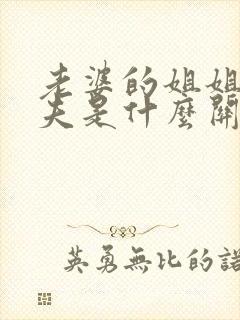 老婆的姐姐
夫是什麼關
英勇無比的諾